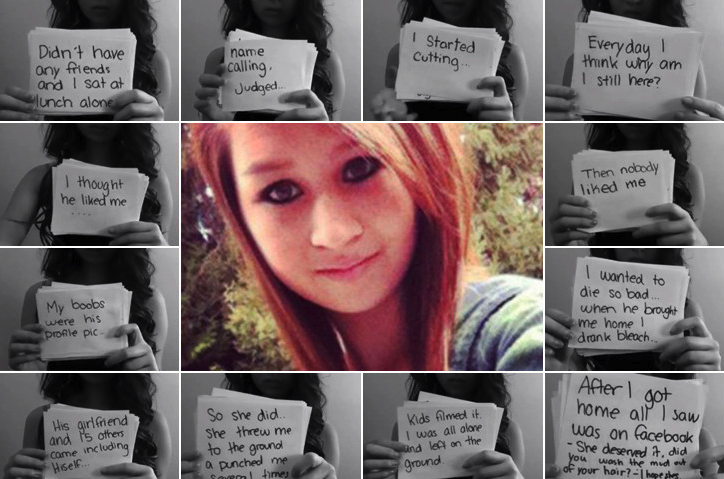 Didn't have
any friends
and I sat at
lunch alone
name
calling,
Judged...
I Started
cutting...
Everyday I
think why am
I still here?
I thought
he liked me
....
Then nobody
liked me
My boobs
were his
profile pic..
I wanted to
die so bad...
when he brought
me home I
drank bleach...
His girlfriend
and 15 others
came including
Hiself...
So she did..
She threw me
to the ground
a punched me
several times
Kids filmed it.
I was all alone
and left on the
ground.
After I got
home all I saw
was on facebook
- She deserved it, did
you wash the mud out
of your hair? - I hope shes